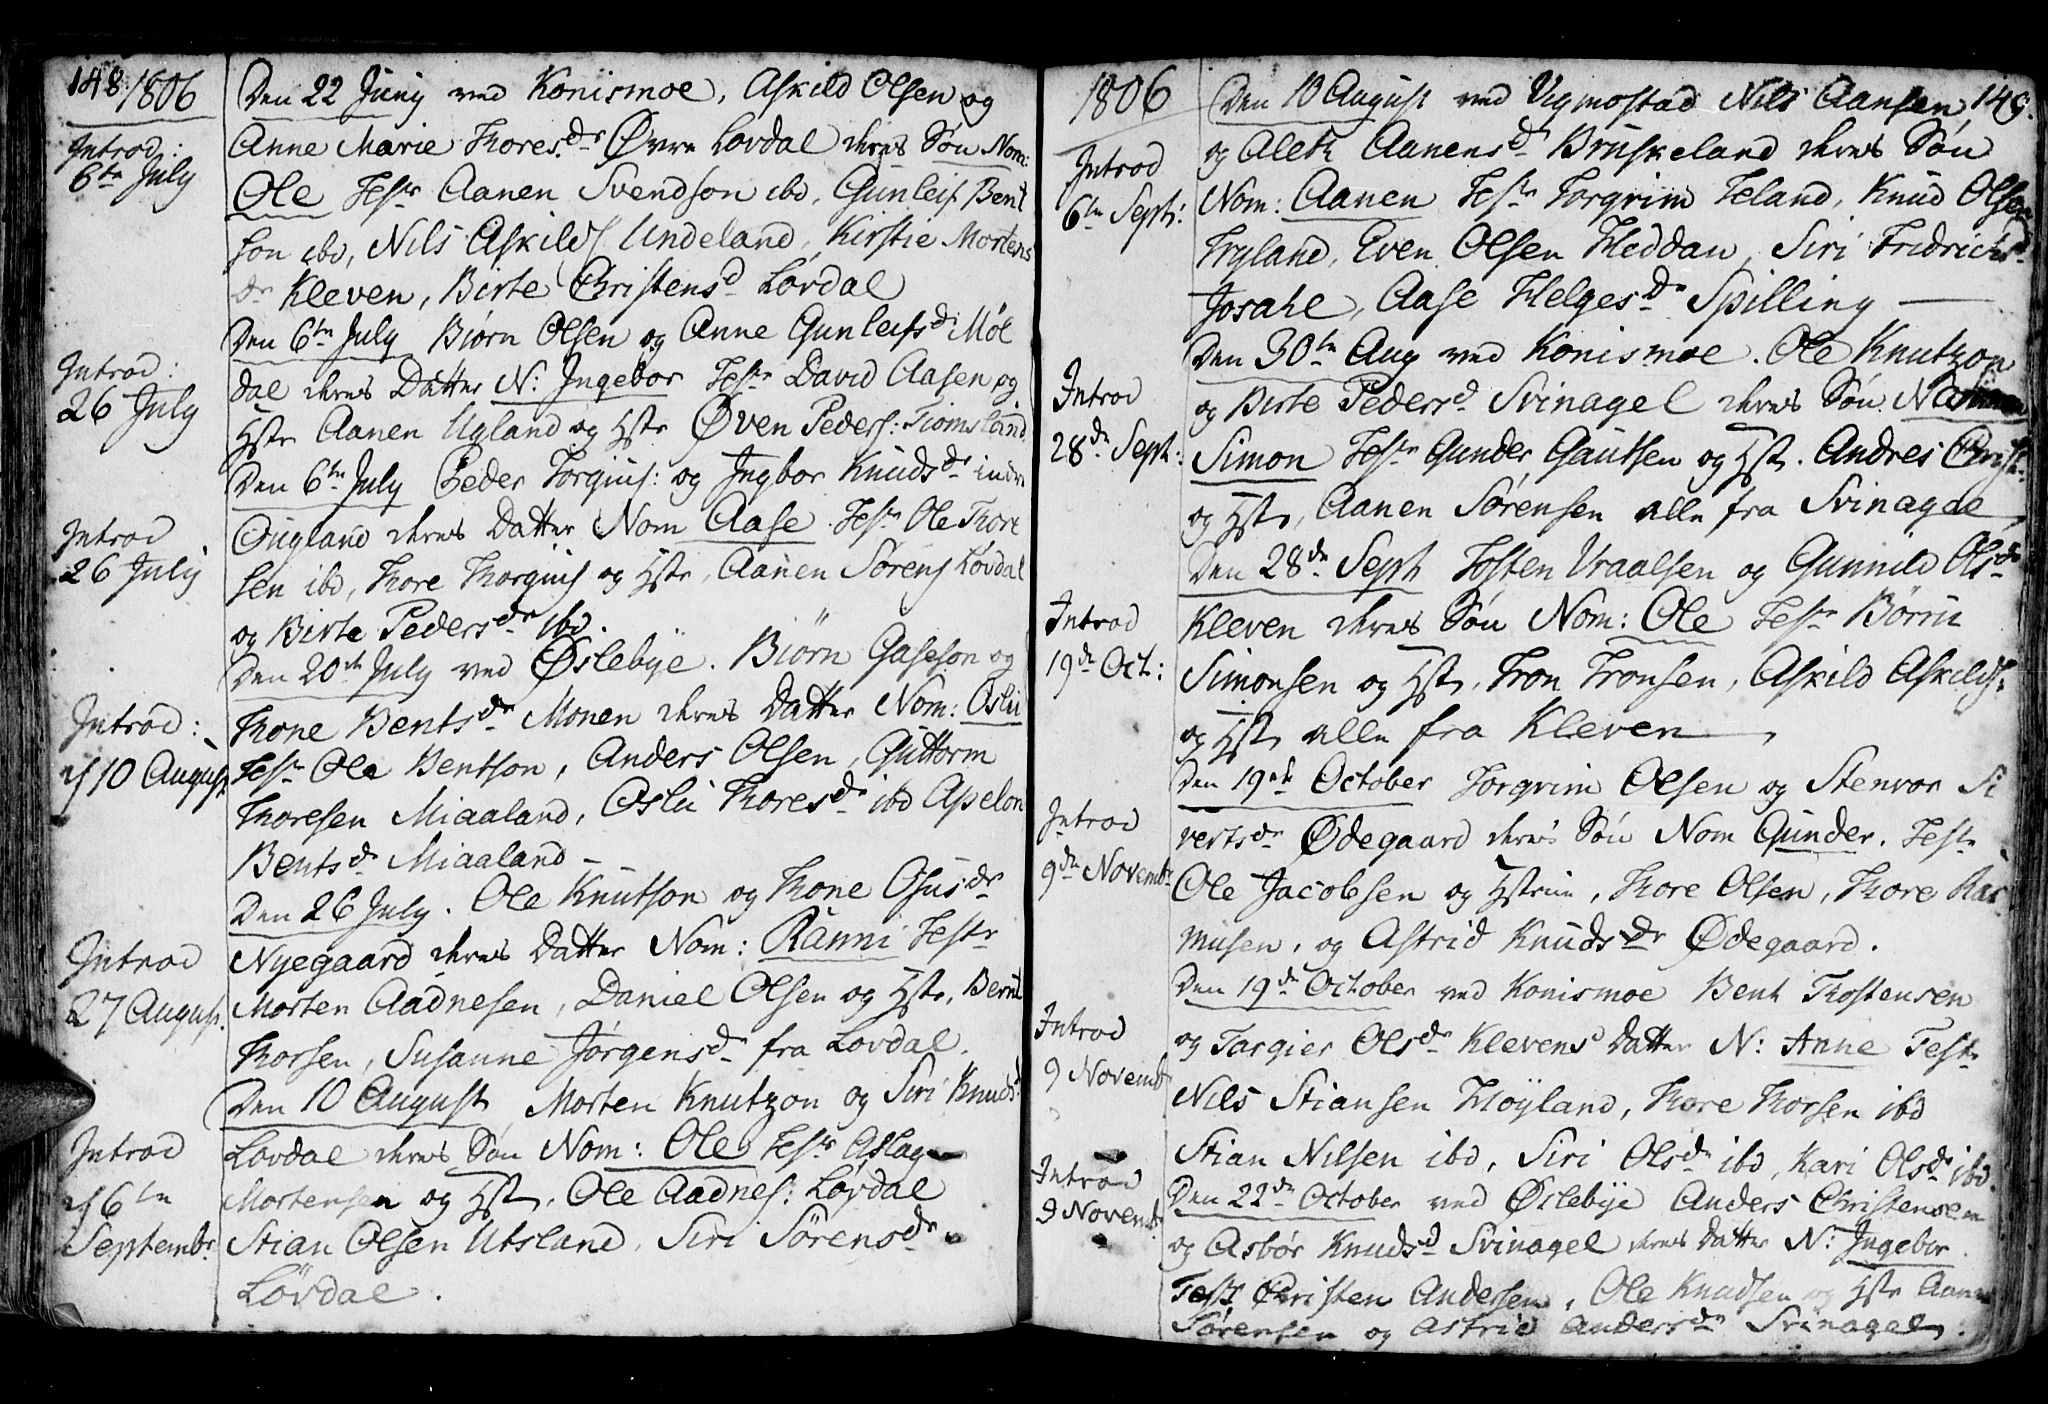 148. 1806
Introd:
6te July
Den 22 Juny ved Konismoe, Askild Olsen og
Anne Marie Thoresdr Øvre Lovdal deres Søn Nom:
Ole Testr Aanen Svendson ibd, Gunleif Bent
son ibd, Nils Askilds Undeland, Kirstie Mortens
dr Kleven, Birte Christensd Lovdal
Introd:
26 July
Den 6te July Biørn Olsen og Anne Gunleifsd: Møl
dal deres Datter N: Ingebor Testr David Aasen og
Hstr Aanen Ugland og Hstr Øven Peders: Tiomsland
Introd
26 July
Den 6te July Peder Torguis: og Ingbor Knudsdr indre
Øugland deres Datter Nom Aase. Testr Ole Thore
sen ibd, Thore Thorguis og Hstr, Aanen Sørens Løvdal
og Birte Pedersdr ibd.
Introd:
10 August
Den 20de July ved Øslebye. Biørn Gaseson og
Thone Bentsdr Monen deres Datter Nom: Oslu
Testr Ole Bentson, Anders Olsen, Guttorm
Thoresen Miaaland, Oslu Thoresdr ibd Apelon
Bentsdr Miaaland
Introd
27 August
Den 26 July. Ole Knutson og Thone Osusdr
Nyegaard deres Datter Nom: Ranni Testr
Morten Aadnesen, Daniel Olsen og Hstr, Bernt
Thorsen, Susanne Jørgensdr fra Lovdal.
Introd
6te
Septembr
Den 10 August Morten Knutzon og Siri Knudsd
Lovdal deres Søn Nom: Ole Testr Aslag
Mortensen og Hstr, Ole Aadnes: Løvdal
Stian Olsen Utsland, Siri Sørensdr
Lövdal.
1806
149.
Introd
6te Sept:
Den 10 August ved Vigmostad Nils Aansen
og Aleth Aanensd Bruskeland deres Søn
Nom: Aanen Testr Torgrim Teland, Knud Olsen
Tryland, Even Olsen Heddan, Siri Fridrichsd
Josahe, Aase Helgesdr Spilling
Introd
28de Sept:
Den 30te Aug ved Konismoe. Ole Knutzon
og Birte Pedersd Svinagel deres Søn
Simon Testr Gunder Gautsen og Hstr. Andres Christ:
og Hstr, Aanen Sørensen alle fra Svinagle
Introd
19de Oct:
Den 28de Sept Tosten Vraalsen og Gunnild Olsdr
Kleven deres Søn Nom: Ole Testr Børru
Simonsen og Hstr, Tron Tronsen, Askild Askilds:
og Hstr alle fra Kleven
Introd
9de Novembr
Den 19de October Torgrim Olsen og Stenvor Si
vertsdr Ødegaard deres Søn Nom Gunder. Testr
Ole Jacobsen og Hstrue, Thore Olsen, Thore Ras
musen, og Astrid Knudsdr Ødegaard.
Introd
9 Novembr
Den 19de October ved Konismoe Bent Thostensen
og Targier Olsdr Klevens Datter N: Anne Testr
Nils Stiansen Høyland, Thore Thorsen ibd
Stian Nilsen ibd, Siri Olsdr ibd, Kari Olsdr ibd.
Introd
9 Novembr
Den 22de October ved Øslebye Anders Christensen
og Asbør Knudsd Svinagel deres Datter N: Ingebor.
Testr Christen Andersen, Ole Knudsen og Hstr Aanen
Sørensen og Astrid Andersdr Svinagel.